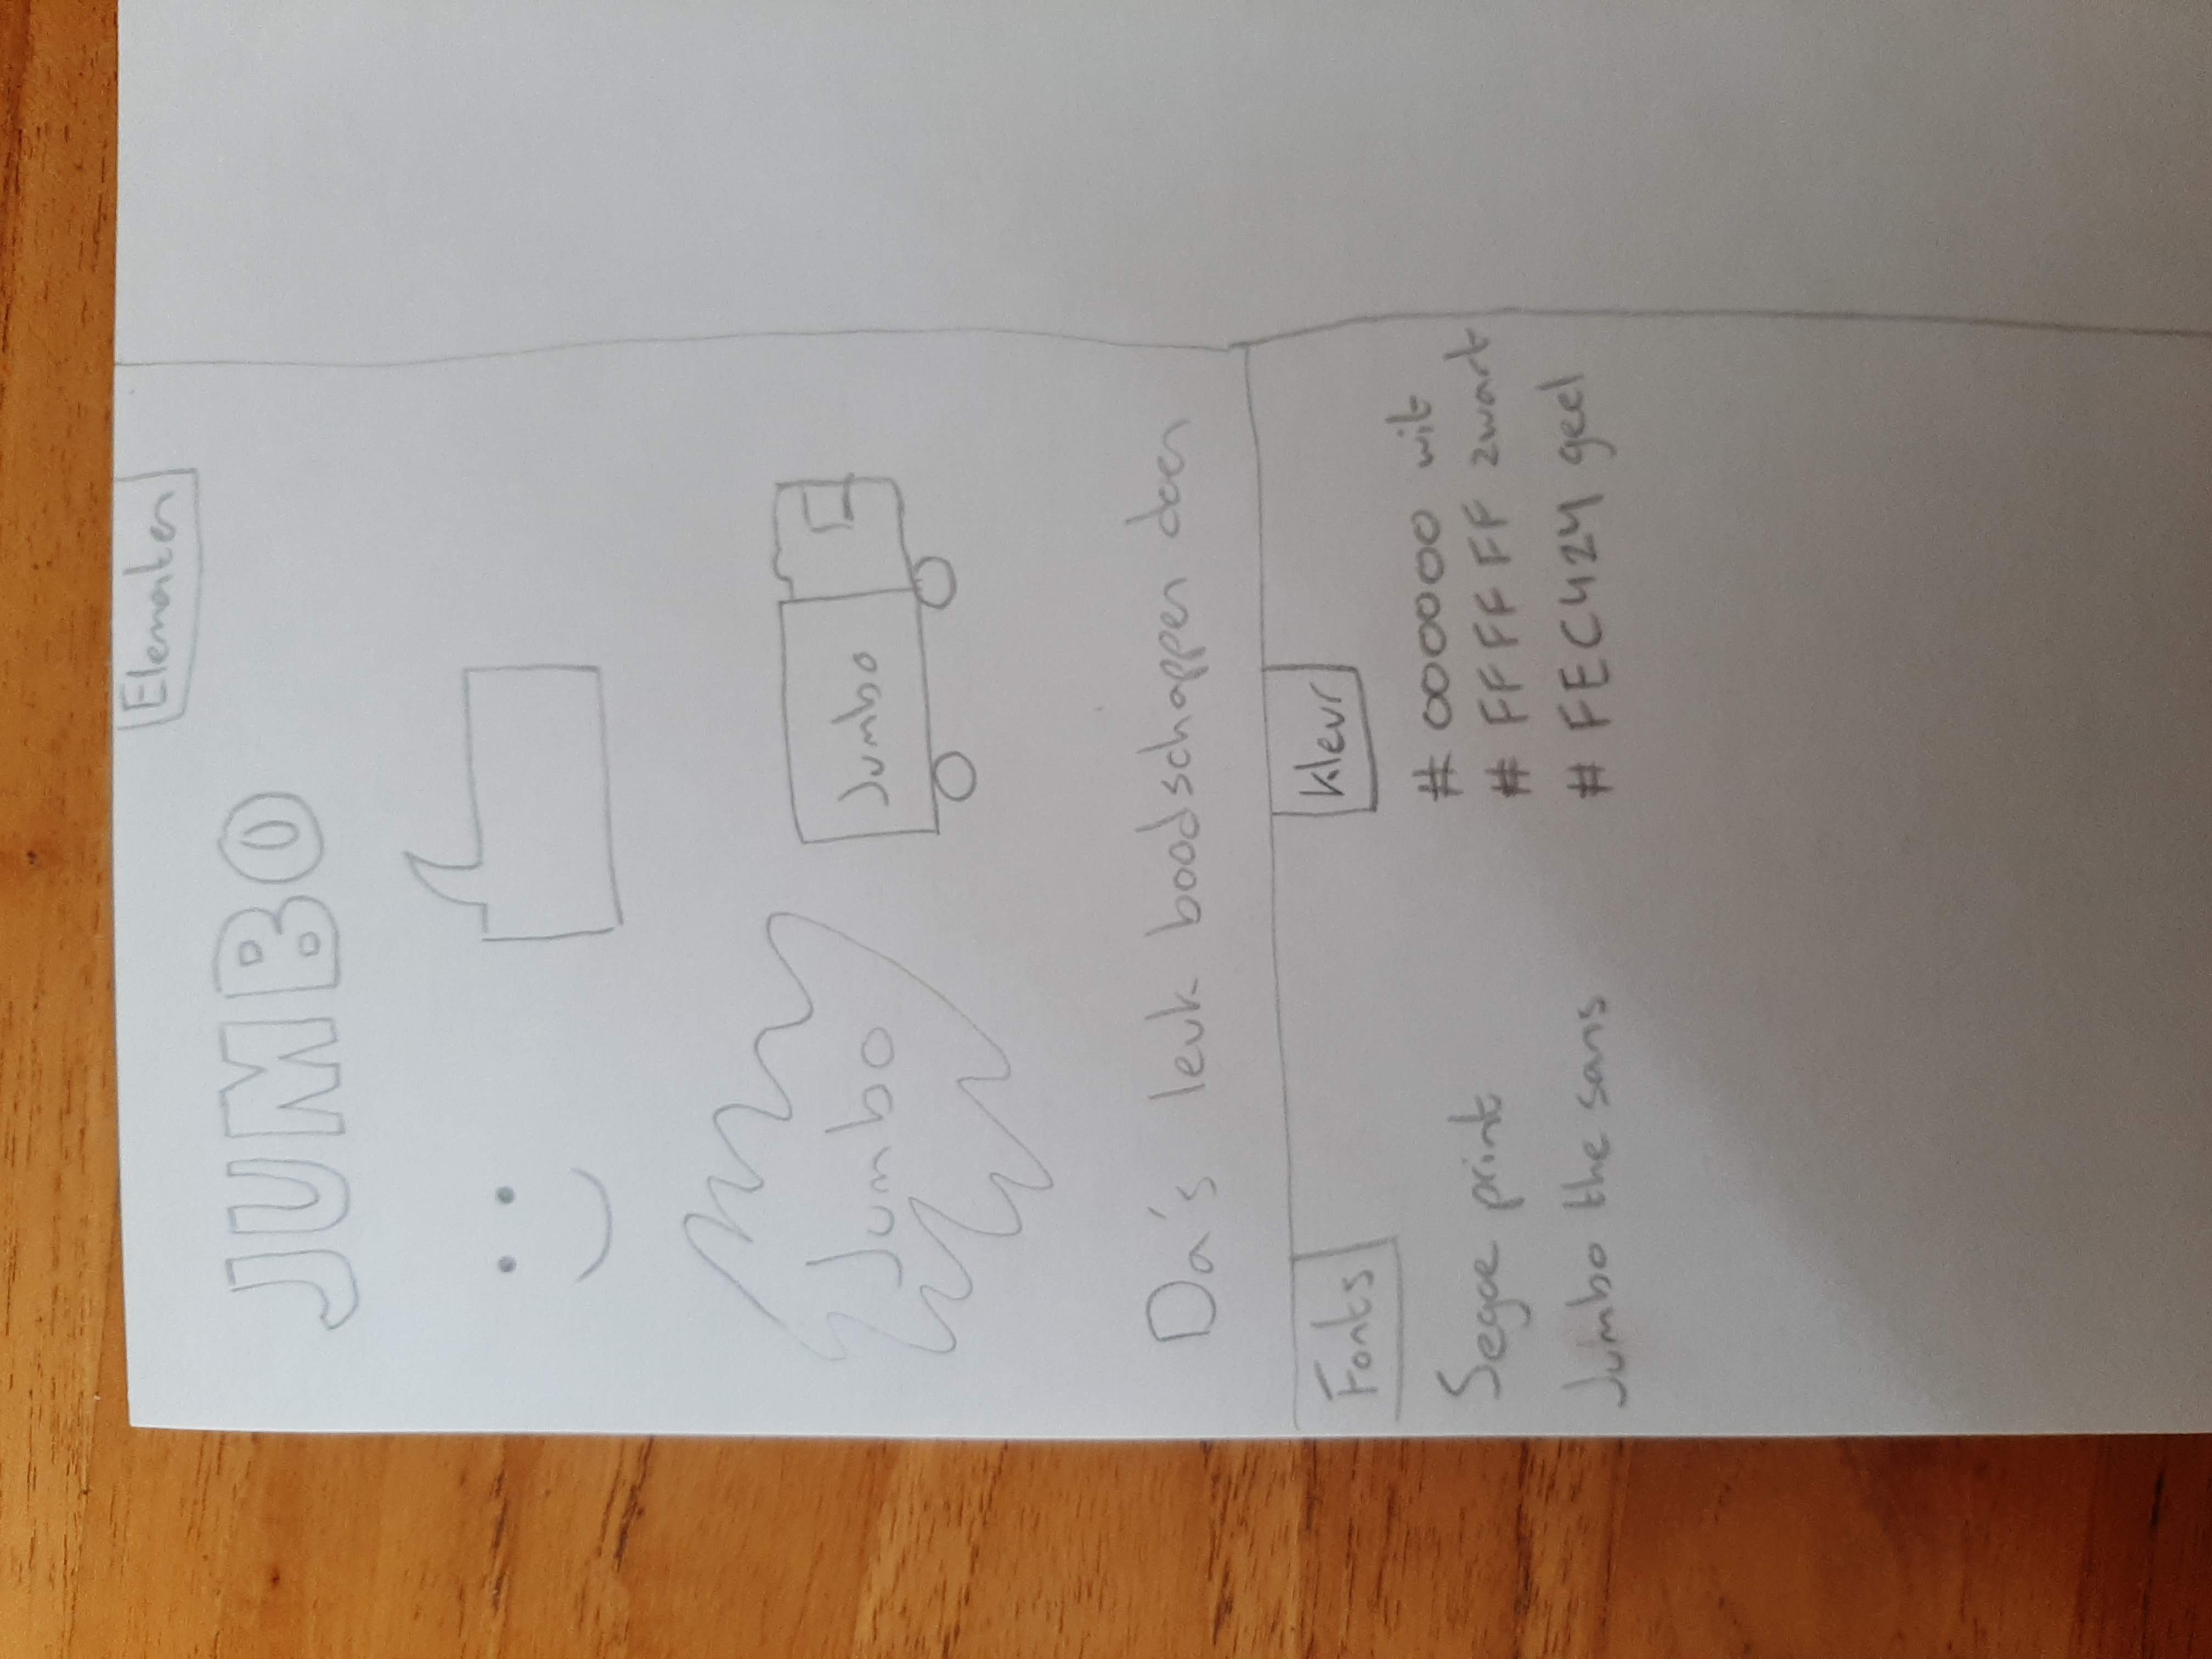 Elementen
JUMBO
Jumbo
Jumbo
Da's leuk boodschappen doen
Fonts
Kleur
Segoe print
Jumbo the sans
# 000000 wit
# FFFFFF zwart
# FEC424 geel